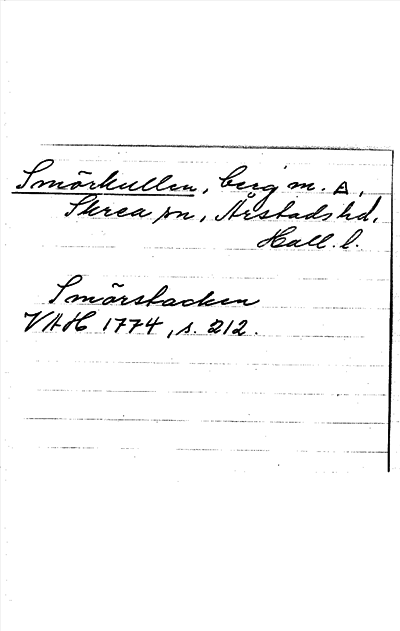 Smörkullen, berg m. △,
Skrea sn, Årstads hd,
Hall. l.
Smörstacken
VAH 1774, s. 212.